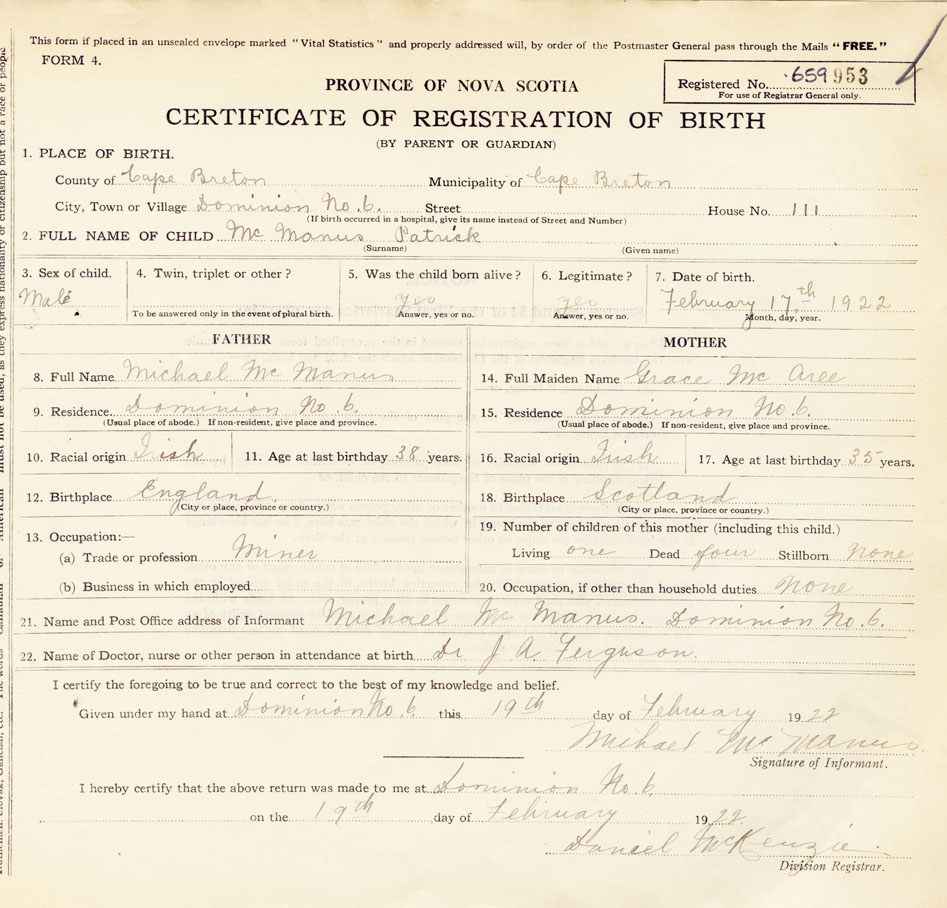 This form if placed in an unsealed envelope marked "Vital Statistics" and properly addressed will, by order of the Postmaster General pass through the Mails "FREE."
FORM 4.
Registered No. 659953
For use of Registrar General only.
PROVINCE OF NOVA SCOTIA
CERTIFICATE OF REGISTRATION OF BIRTH
(BY PARENT OR GUARDIAN)
1. PLACE OF BIRTH.
County of Cape Breton Municipality of Cape Breton
City, Town or Village Dominion No. 6. Street House No. 111
(If birth occurred in a hospital, give its name instead of Street and Number)
2. FULL NAME OF CHILD Mc Manus Patrick
(Surname) (Given name)
3. Sex of child. 4. Twin, triplet or other? 5. Was the child born alive? 6. Legitimate? 7. Date of birth.
Male yes yes February 17th 1922
To be answered only in the event of plural birth. Answer, yes or no. Answer, yes or no. Month, day, year.
FATHER MOTHER
8. Full Name Michael Mc Manus 14. Full Maiden Name Grace Mc Aree
9. Residence Dominion No 6. 15. Residence Dominion No 6.
(Usual place of abode.) If non-resident, give place and province. (Usual place of abode.) If non-resident, give place and province.
10. Racial origin Irish 11. Age at last birthday 38 years. 16. Racial origin Irish 17. Age at last birthday 35 years.
12. Birthplace England. 18. Birthplace Scotland
(City or place, province or country.) (City or place, province or country.)
13. Occupation:— 19. Number of children of this mother (including this child.)
(a) Trade or profession Miner Living one Dead four Stillborn None
(b) Business in which employed 20. Occupation, if other than household duties None
21. Name and Post Office address of Informant Michael Mc Manus. Dominion No. 6.
22. Name of Doctor, nurse or other person in attendance at birth Dr J A. Ferguson.
I certify the foregoing to be true and correct to the best of my knowledge and belief.
Given under my hand at Dominion No. 6 this 19th day of February 1922
Michael Mc Manus.
Signature of Informant.
I hereby certify that the above return was made to me at Dominion No 6.
on the 19th day of February 1922
Daniel McKenzie.
Division Registrar.